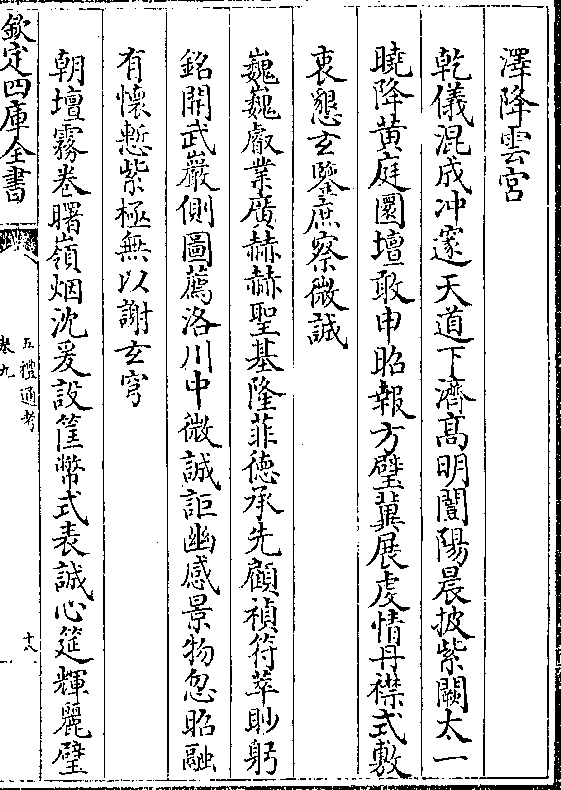 澤降雲宮
乾儀混成冲邃天道下濟高明闓陽晨披紫闕太一
曉降黃庭圜壇敢申昭報方璧冀展虔情丹襟式敷
衷懇玄鑒庶察微誠
巍巍叡業廣赫赫聖基隆菲德承先顧禎符萃眇躬
銘開武巖側圖薦洛川中微誠詎幽感景物忽昭融
有懷慙紫極無以謝玄穹
朝壇霧卷曙嶺烟沈爰設筐幣式表誠心筵輝麗璧
欽定四庫全書
五禮通考
卷九
十八